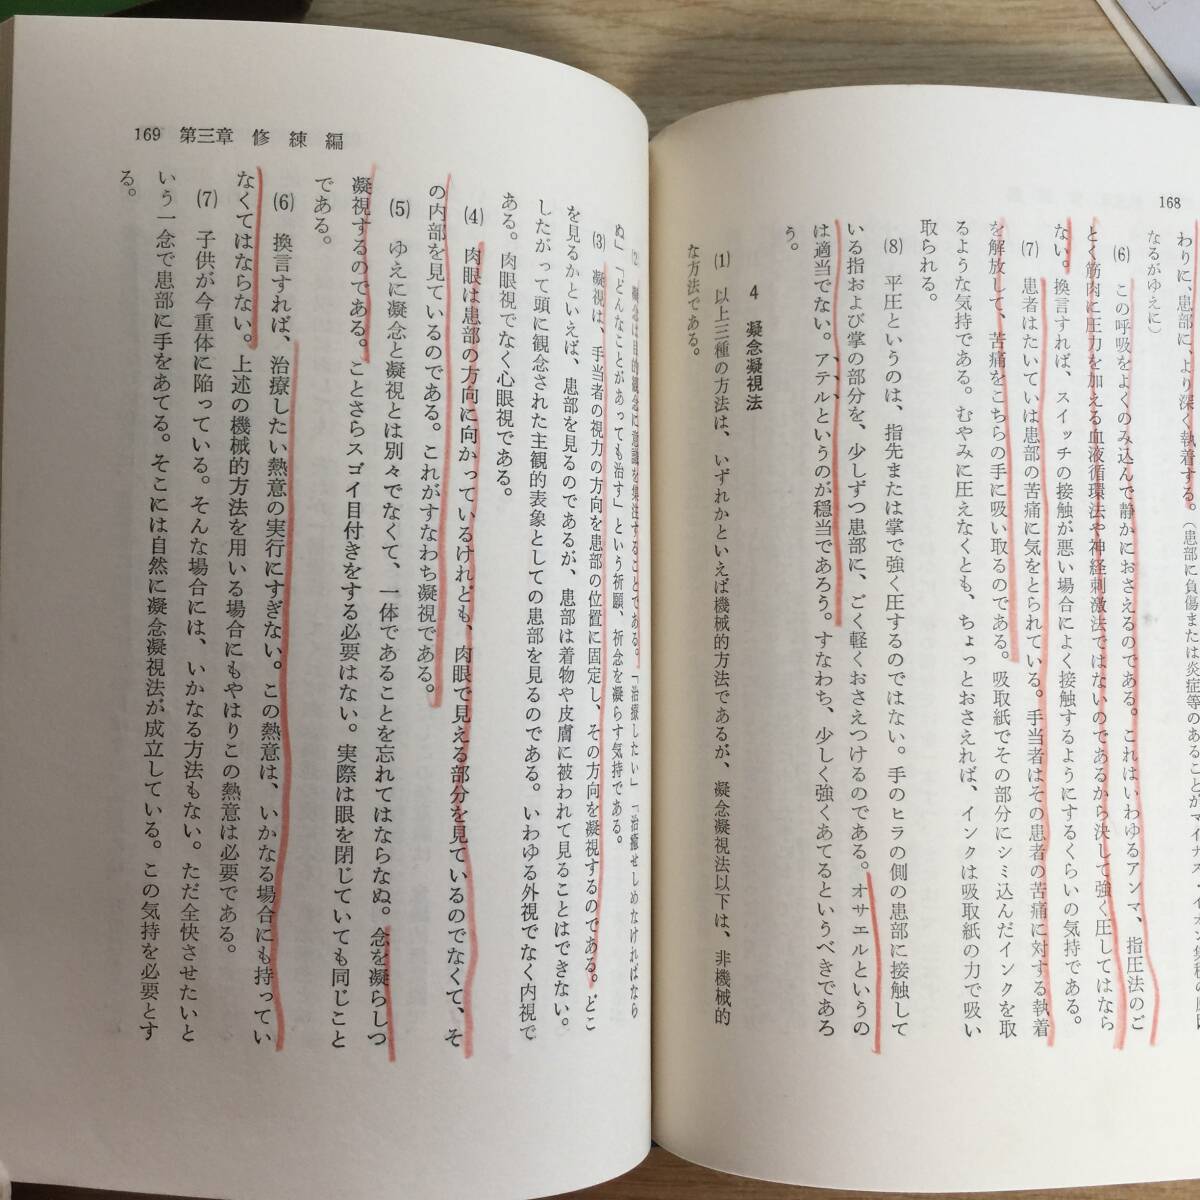 168
わりに、患部に、より深く執着する。（患部に負傷または炎症等のあることが
なるがゆえに）
(6) この呼吸をよくのみ込んで静かにおさえるのである。これはいわゆるアンマ、指圧法のご
とく筋肉に圧力を加える血液循環法や神経刺激法ではないのであるから決して強く圧してはなら
ない。換言すれば、スイッチの接触が悪い場合によく接触するようにするくらいの気持である。
(7) 患者はたいていは患部の苦痛に気をとられている。手当者はその患者の苦痛に対する執着
を解放して、苦痛をこちらの手に吸い取るのである。吸取紙でその部分にシミ込んだインクを取
るような気持である。むやみに圧えなくとも、ちょっとおさえれば、インクは吸取紙の力で吸い
取られる。
(8) 平圧というのは、指先または掌で強く圧するのではない。手のヒラの側の患部に接触して
いる指および掌の部分を、少しずつ患部に、ごく軽くおさえつけるのである。オサエルというの
は適当でない。アテルというのが穏当であろう。すなわち、少しく強くあてるというべきであろ
う。
4 凝念凝視法
(1) 以上三種の方法は、いずれかといえば機械的方法であるが、凝念凝視法以下は、非機械的
な方法である。
169 第三章 修練編
(2) 凝念は目的観念に意識を集注することである。「治療したい」「治癒せしめなければなら
ぬ」「どんなことがあっても治す」という祈願、祈念を凝らす気持である。
(3) 凝視は、手当者の視力の方向を患部の位置に固定し、その方向を凝視するのである。どこ
を見るかといえば、患部を見るのであるが、患部は着物や皮膚に被われて見ることはできない。
したがって頭に観念された主観的表象としての患部を見るのである。いわゆる外視でなく内視で
ある。肉眼視でなく心眼視である。
(4) 肉眼は患部の方向に向かっているけれども、肉眼で見える部分を見ているのでなくて、そ
の内部を見ているのである。これがすなわち凝視である。
(5) ゆえに凝念と凝視とは別々でなくて、一体であることを忘れてはならなぬ。念を凝らしつ
凝視するのである。ことさらスゴイ目付きをする必要はない。実際は眼を閉じていても同じこと
である。
(6) 換言すれば、治療したい熱意の実行にすぎない。この熱意は、いかなる場合にも持ってい
なくてはならない。上述の機械的方法を用いる場合にもやはりこの熱意は必要である。
(7) 子供が今重体に陥っている。そんな場合には、いかなる方法もない。ただ全快させたいと
いう一念で患部に手をあてる。そこには自然に凝念凝視法が成立している。この気持を必要とす
る。